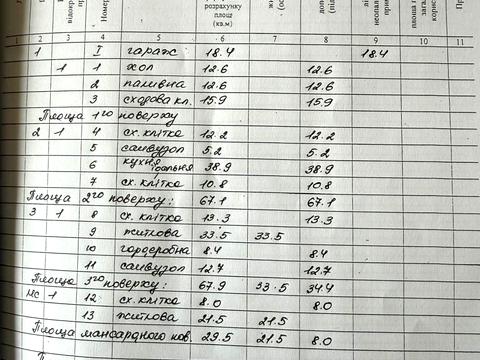 розрахунку
площі
(кв.м)
1 2 3 4 5 6 7 8 9 10 11
1 I гараж 18.4 18.4
1 1 хол 12.6 12.6
2 паливна 12.6 12.6
3 сходова кл. 15.9 15.9
Площа 1го поверху
2 1 4 сх. клітка 12.2 12.2
5 санвузол 5.2 5.2
6 кухня їдальня 38.9 38.9
7 сх. клітка 10.8 10.8
Площа 2го поверху: 67.1 67.1
3 1 8 сх. клітка 13.3 13.3
9 житлова 33.5 33.5
10 гардеробна 8.4 8.4
11 санвузол 12.7 12.7
Площа 3го поверху: 67.9 33.5 34.4
мс 1 12 сх. клітка 8.0 8.0
13 житлова 21.5 21.5
Площа мансардного пов. 29.5 21.5 8.0